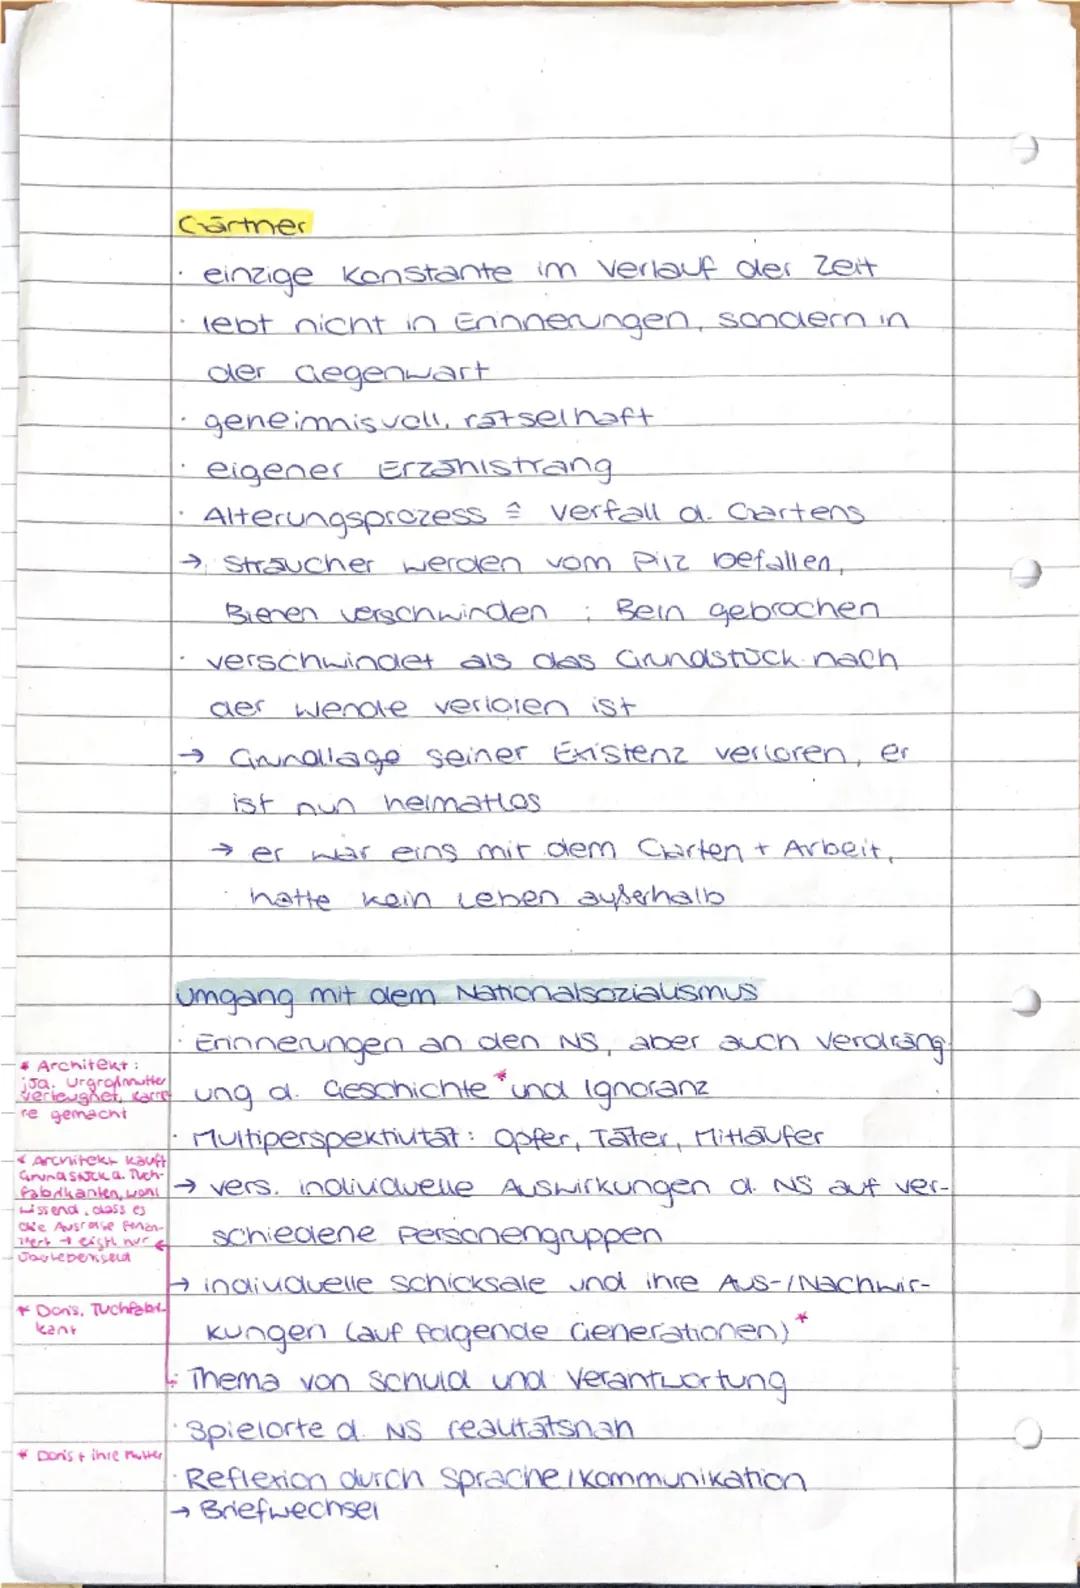 Gärtner
· einzige Konstante im Verlauf der Zeit
· lebt nicht in Erinnerungen, sondern in
der Gegenwart
· geheimnisvoll, rätselhaft
· eigener Erzählstrang
· Alterungsprozess ≙ Verfall d. Gartens
→ Sträucher werden vom Pilz befallen,
Bienen verschwinden ; Bein gebrochen
· verschwindet als das Grundstück nach
der Wende verloren ist
→ Grundlage seiner Existenz verloren, er
ist nun heimatlos
→ er war eins mit dem Garten + Arbeit,
hatte kein Leben außerhalb
Umgang mit dem Nationalsozialismus
· Erinnerungen an den NS, aber auch Verdräng-
ung d. Geschichte * und Ignoranz
* Architekt:
jüd. Urgroßmutter
verleugnet, Karrie
re gemacht
· Multiperspektivität: Opfer, Täter, Mitläufer
* Architekt kauft
Grundstück d. Tuch-
fabrikanten, wohl
wissend, dass es
die Ausreise finan-
ziert → eigtl. nur
→ vers. individuelle Auswirkungen d. NS auf ver-
schiedene Personengruppen
→ individuelle Schicksale und ihre Aus-/Nachwir-
kungen (auf folgende Generationen) *
* Doris, Tuchfabri-
kant
· Thema von Schuld und Verantwortung
· Spielorte d. NS realitätsnah
* Doris + ihre Mutter
· Reflexion durch Sprache/Kommunikation
→ Briefwechsel